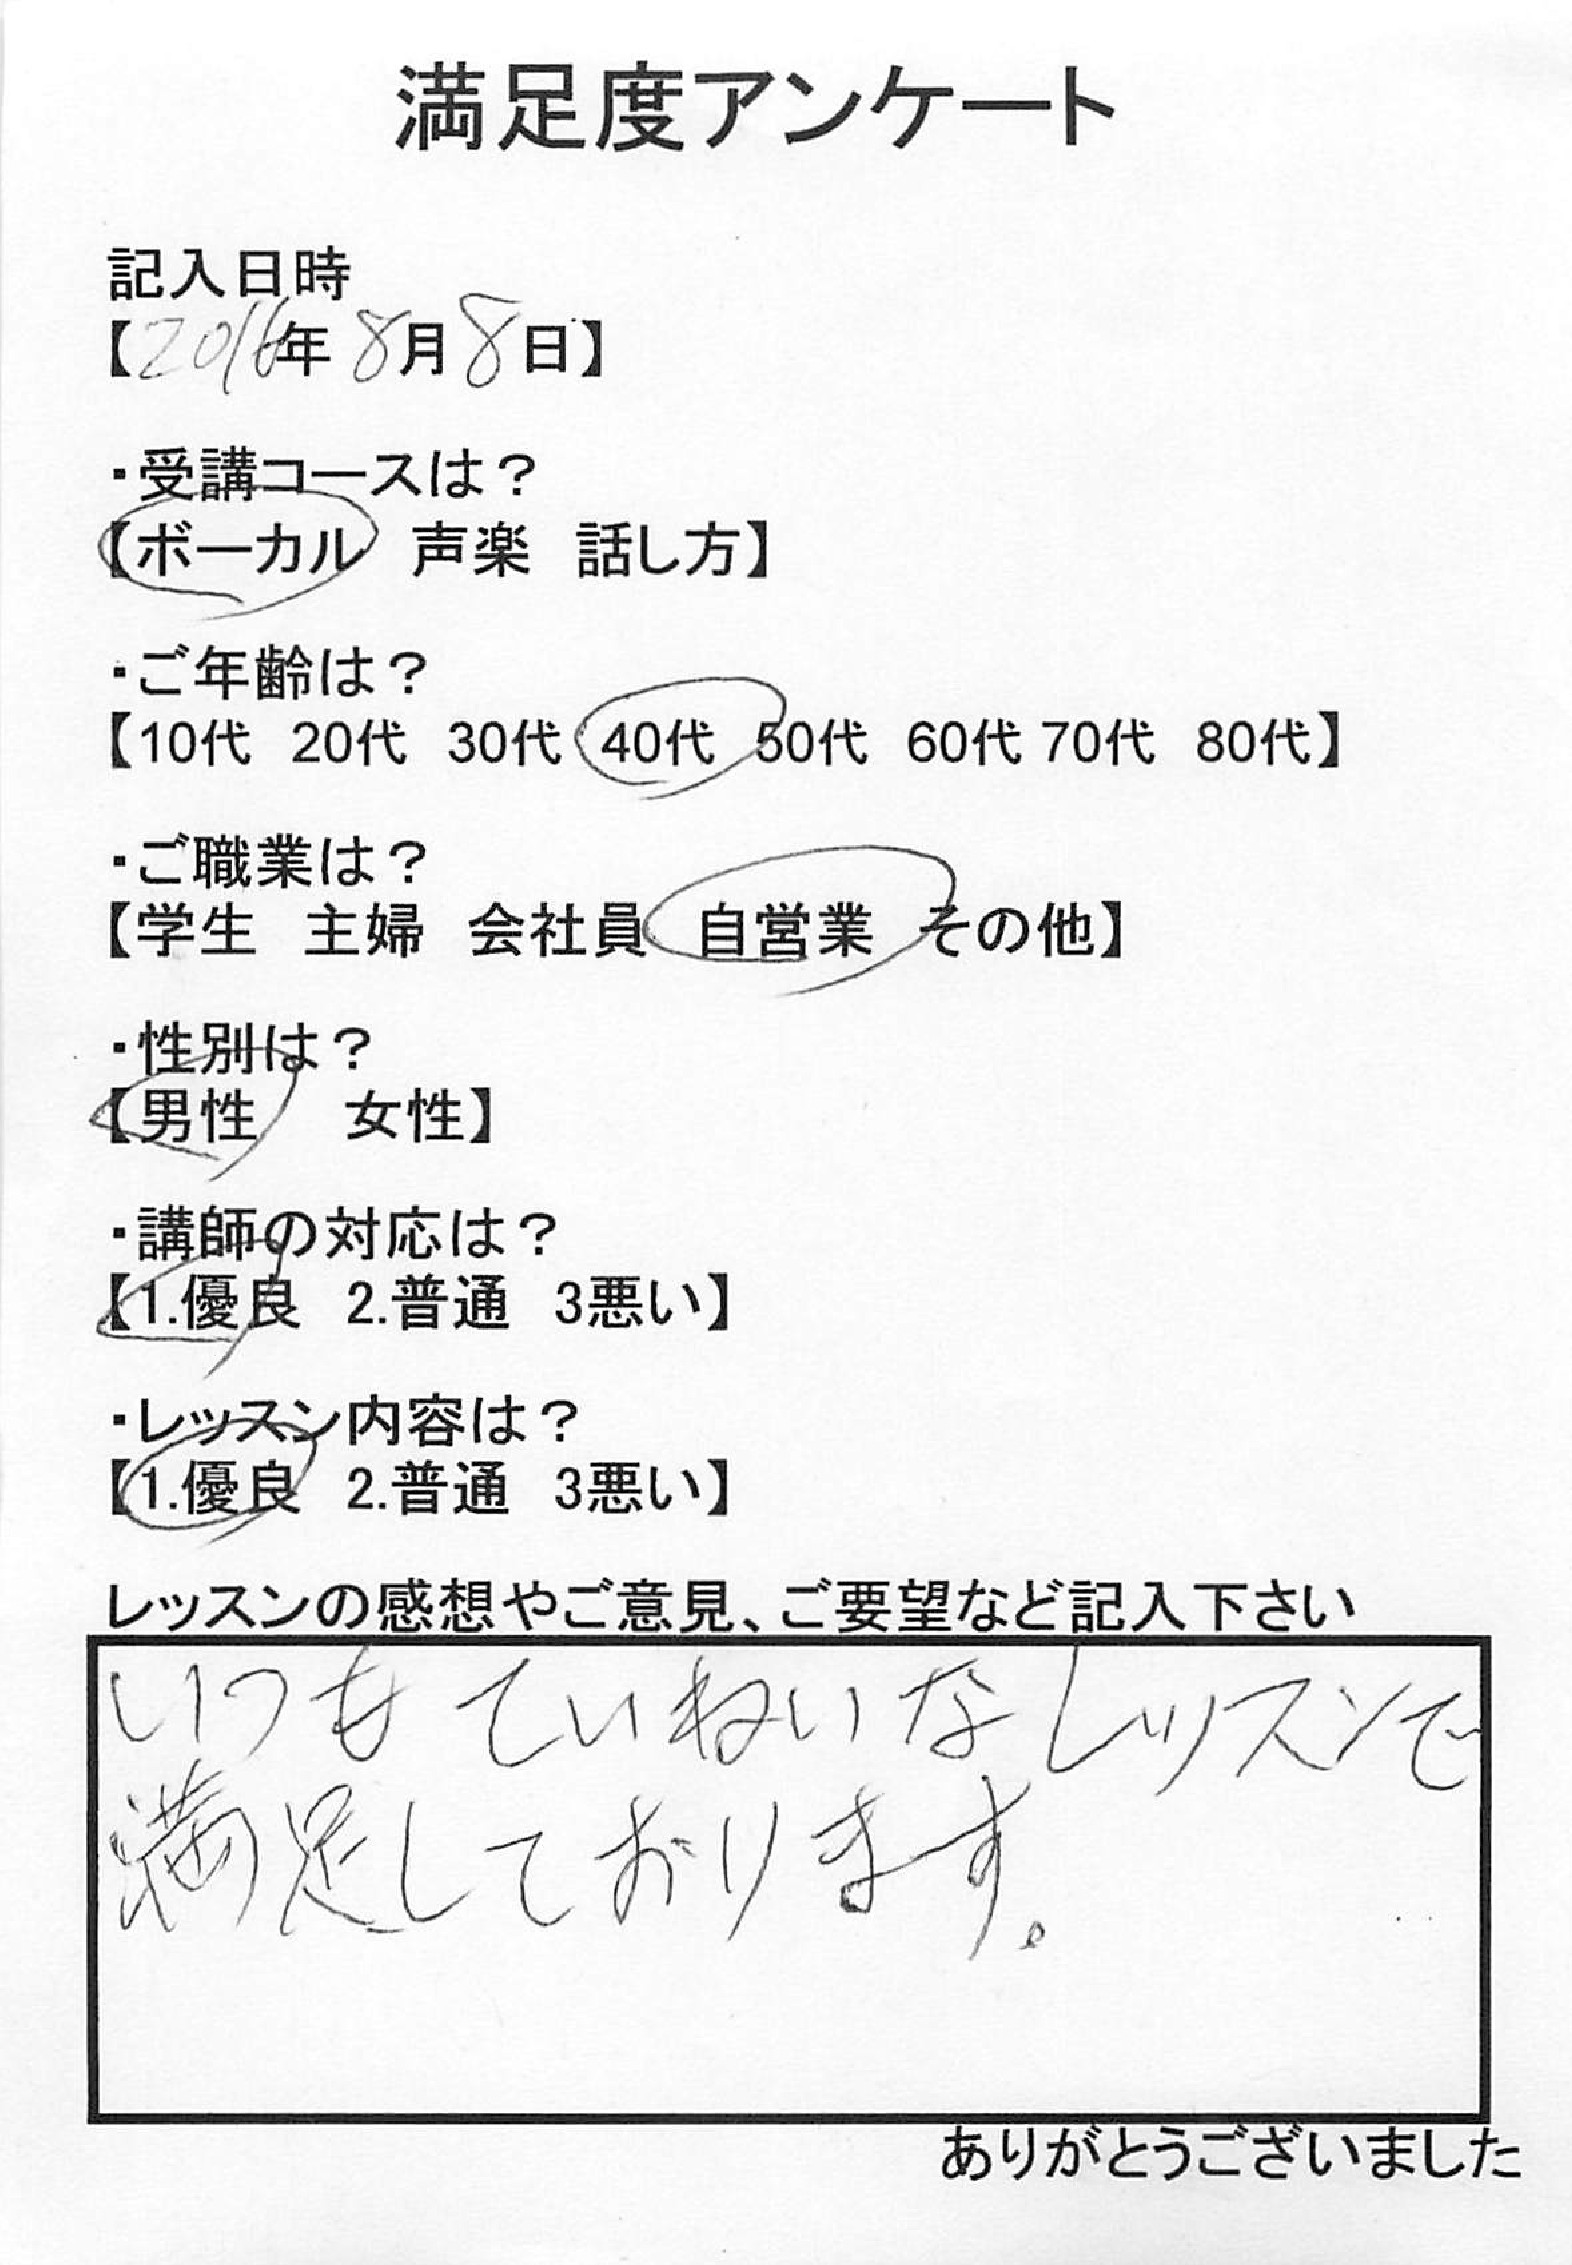 満足度アンケート
記入日時
【2016年 8月 8日】
・受講コースは？
【ボーカル　声楽　話し方】
・ご年齢は？
【10代　20代　30代　40代　50代　60代 70代　80代】
・ご職業は？
【学生　主婦　会社員　自営業　その他】
・性別は？
【男性　女性】
・講師の対応は？
【1.優良　2.普通　3悪い】
・レッスン内容は？
【1.優良　2.普通　3悪い】
レッスンの感想やご意見、ご要望など記入下さい
いつもていねいなレッスンで
満足しております。
ありがとうございました